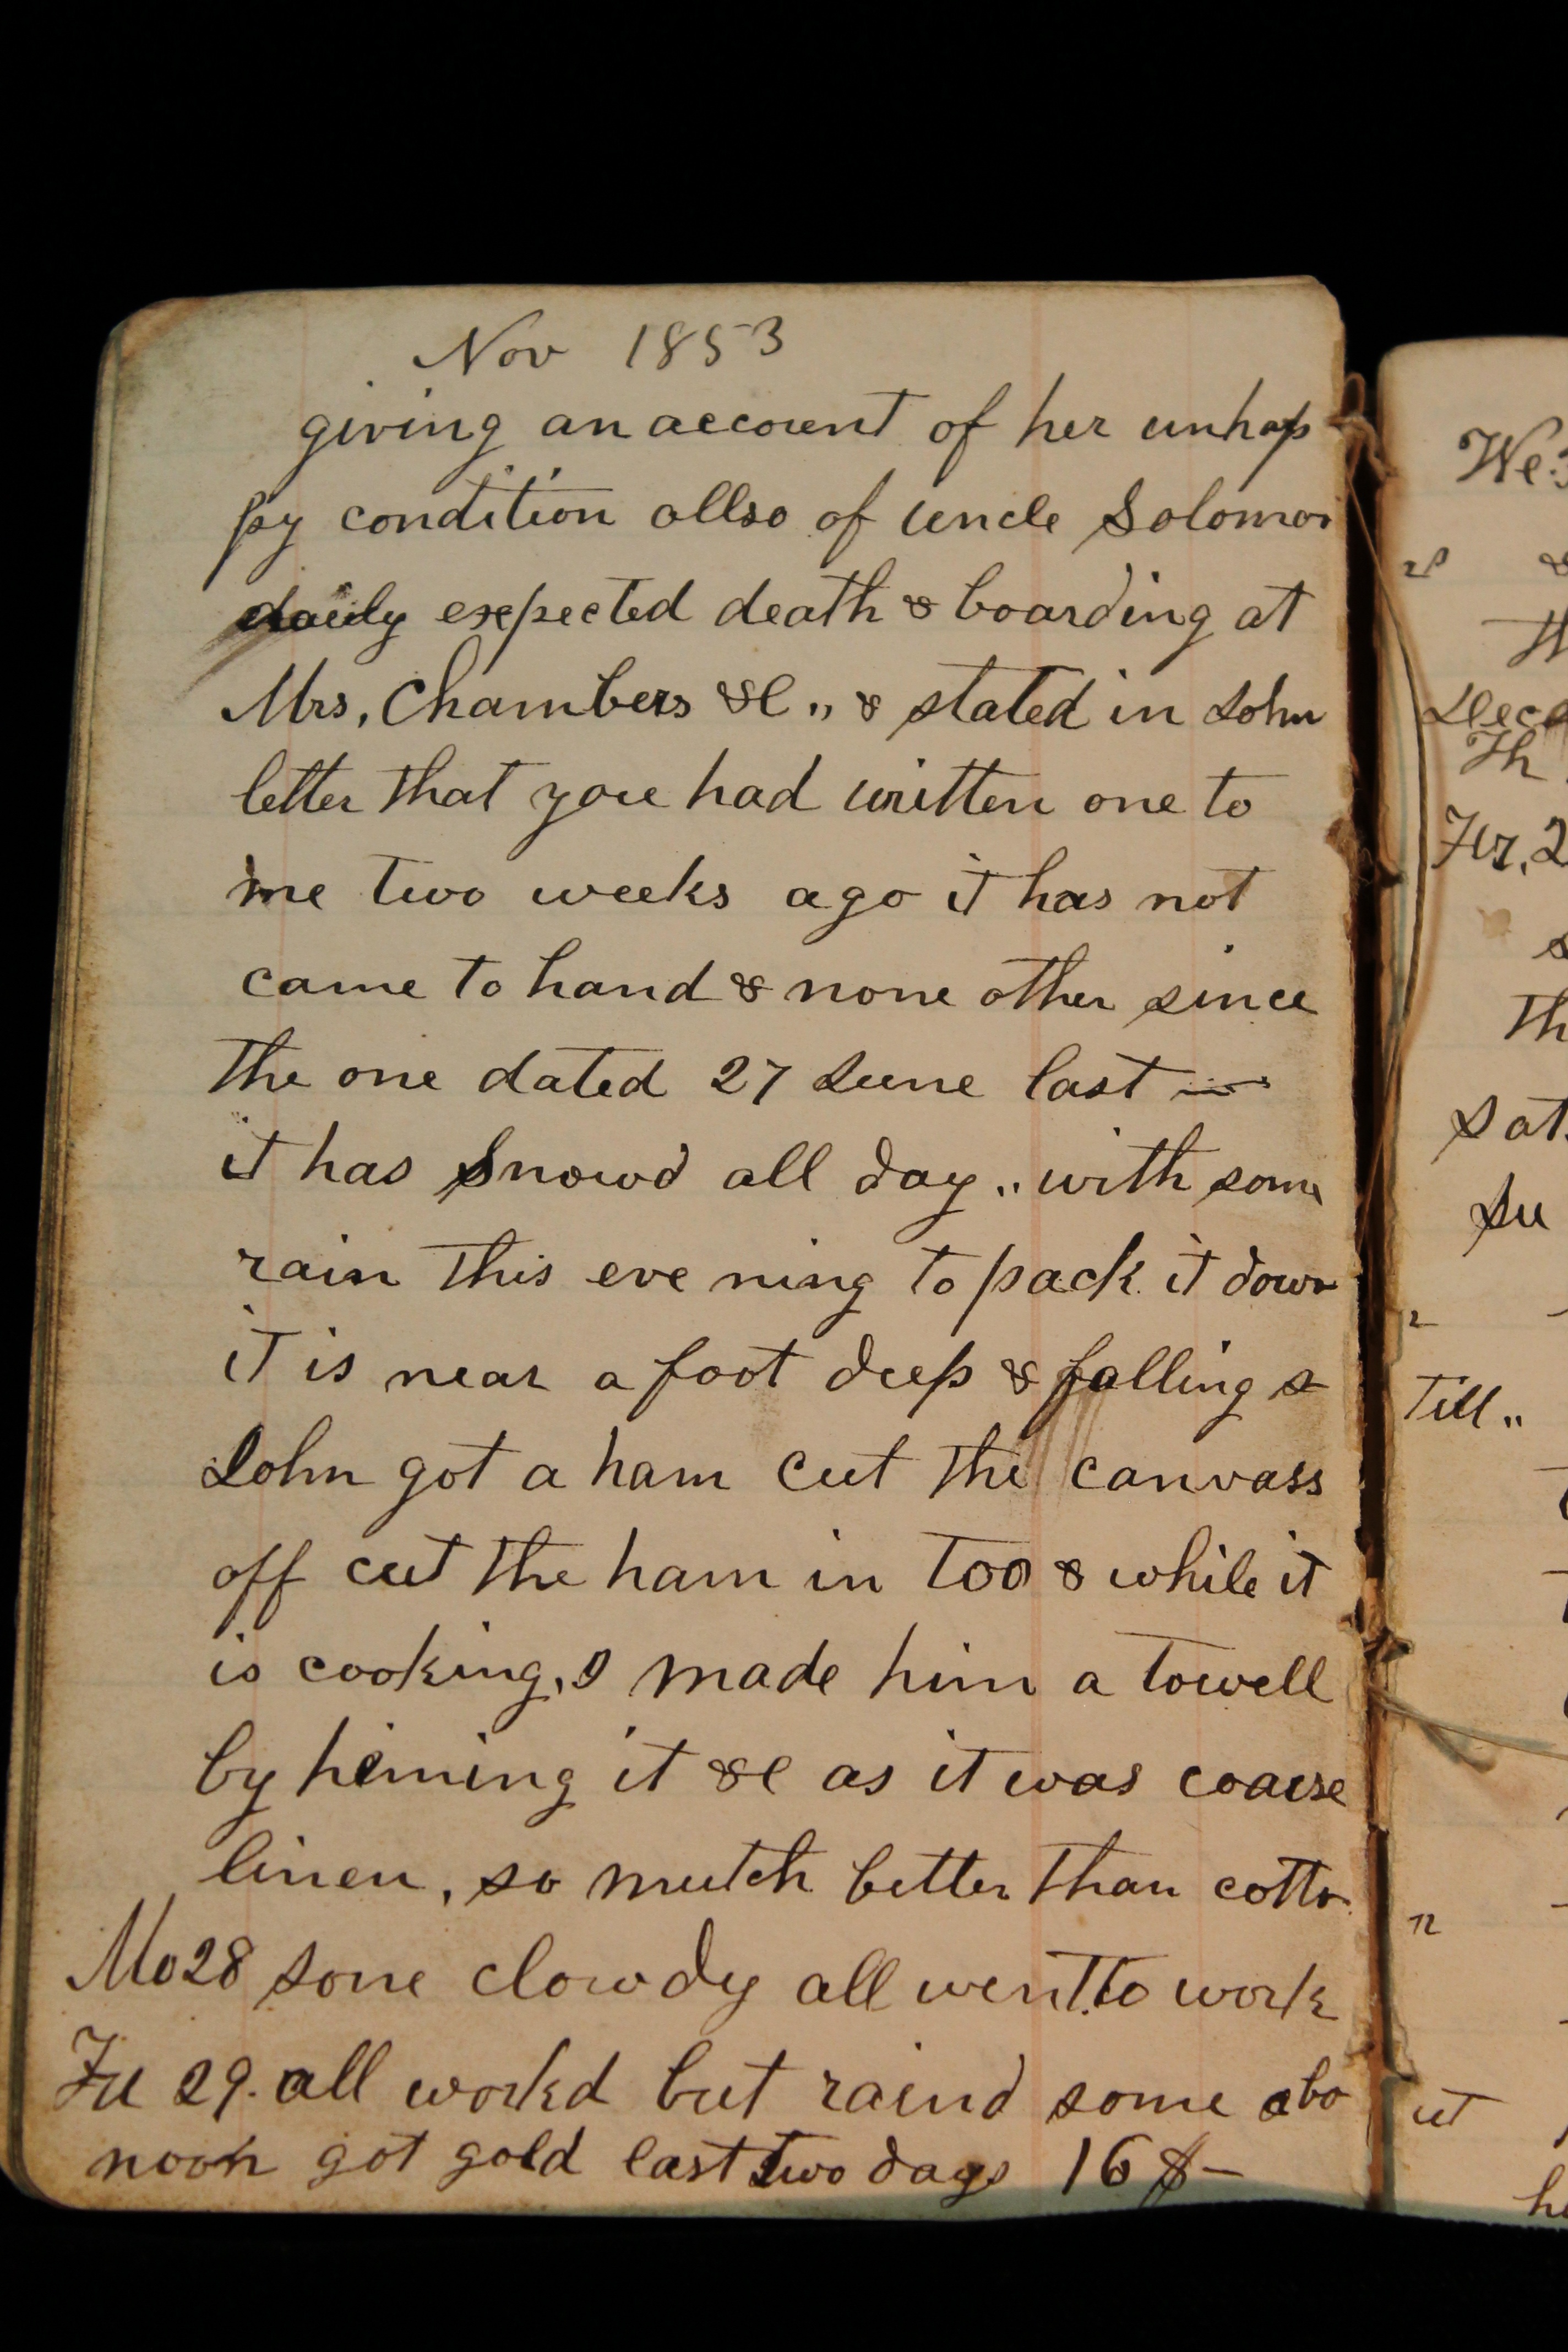 Nov 1853
giving an account of her unhap
py condition allso of uncle Solomon
daily expected death & boarding at
Mrs, Chambers &c ,, & stated in John
letter that you had written one to
me two weeks ago it has not
came to hand & none other since
the one dated 27 June last —
it has Snowd all day ,, with some
rain this eve ning to pack it down
it is near a foot deep & falling
John got a ham cut the canvass
off cut the ham in too & while it
is cooking, I made him a towell
by heming it &c as it was coarse
linen, so mutch better than cotto
Mo 28 some clowdy all went to work
Tu 29. all workd but raind some abo
noon got gold last two days 16 $ —
We.
Th
Fr, 2
th
Sat
Su
Till ,,
ut